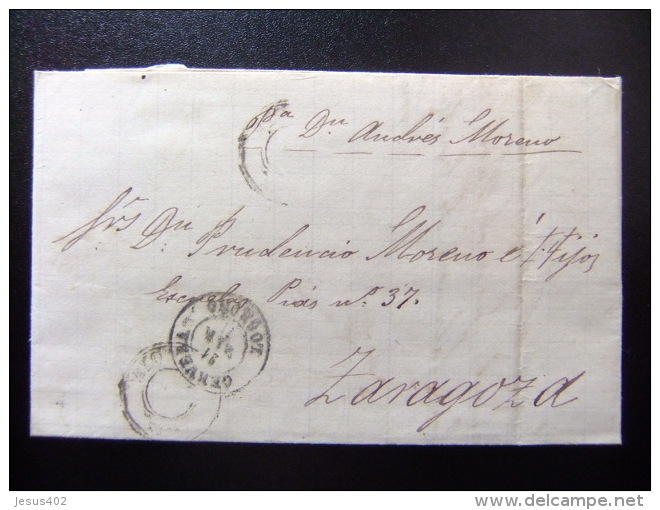 Pa Dn Andrés Moreno
Srs Dn Prudencio Moreno é Hijos
Escuelas Pias no. 37.
LOGROÑO
21
MAR
CERVERA
Zaragoza
Jesus402
delcampe.net